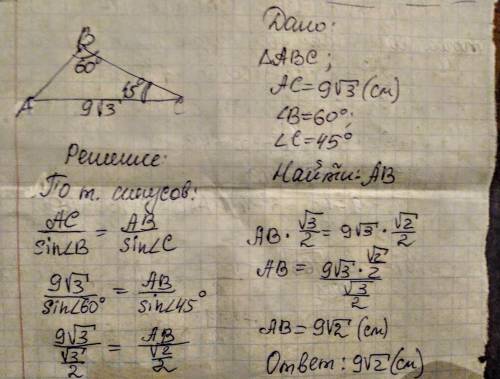 B
60°
45°
A
9√3
C
Дано:
△ABC;
AC=9√3 (см)
∠B=60°;
∠C=45°
Найти: AB
Решение:
По т. синусов:
AC/sin∠B = AB/sin∠C
9√3/sin∠60° = AB/sin∠45°
9√3/(√3/2) = AB/(√2/2)
AB · √3/2 = 9√3 · √2/2
AB = (9√3 · √2/2)/(√3/2)
AB = 9√2 (см)
Ответ: 9√2 (см)